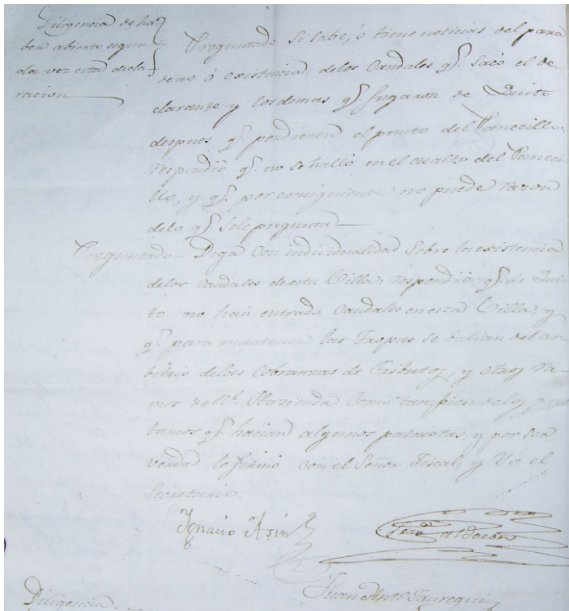 Diligencia de ha
ber abierto segun
da vez esta decla
racion
Preguntado Si sabe, ó tiene noticias del para
dero ó existencia delos Caudales qe. Sacó el de
clarante y los demas qe. fugaron de Quito
despues qe. perdieron el punto del Panecillo.
respondió qe. no se halló en el asalto del Paneci
llo, y qe. por consiguiente no puede razon
delo qe. sele pregunta
Preguntado Diga con individualidad Sobre la existencia
delos Caudales de esta Villa, respondió qe. de Qui
to, no han entrado Caudales en esta Villa, y
qe. para mantener las Tropas se balian del ar
bitrio de las Cobranzas de Tributos, y otros Ra
mos de Rl. Hazienda Como tambien de los pres
tamos qe. hacian algunos patriotas, y por ser
verdad lo firmó con el Señor Fiscal, y Yó el
Secretario.
Ignacio Asin
Calderon
Juan Anto. Jauregui
Diligencia